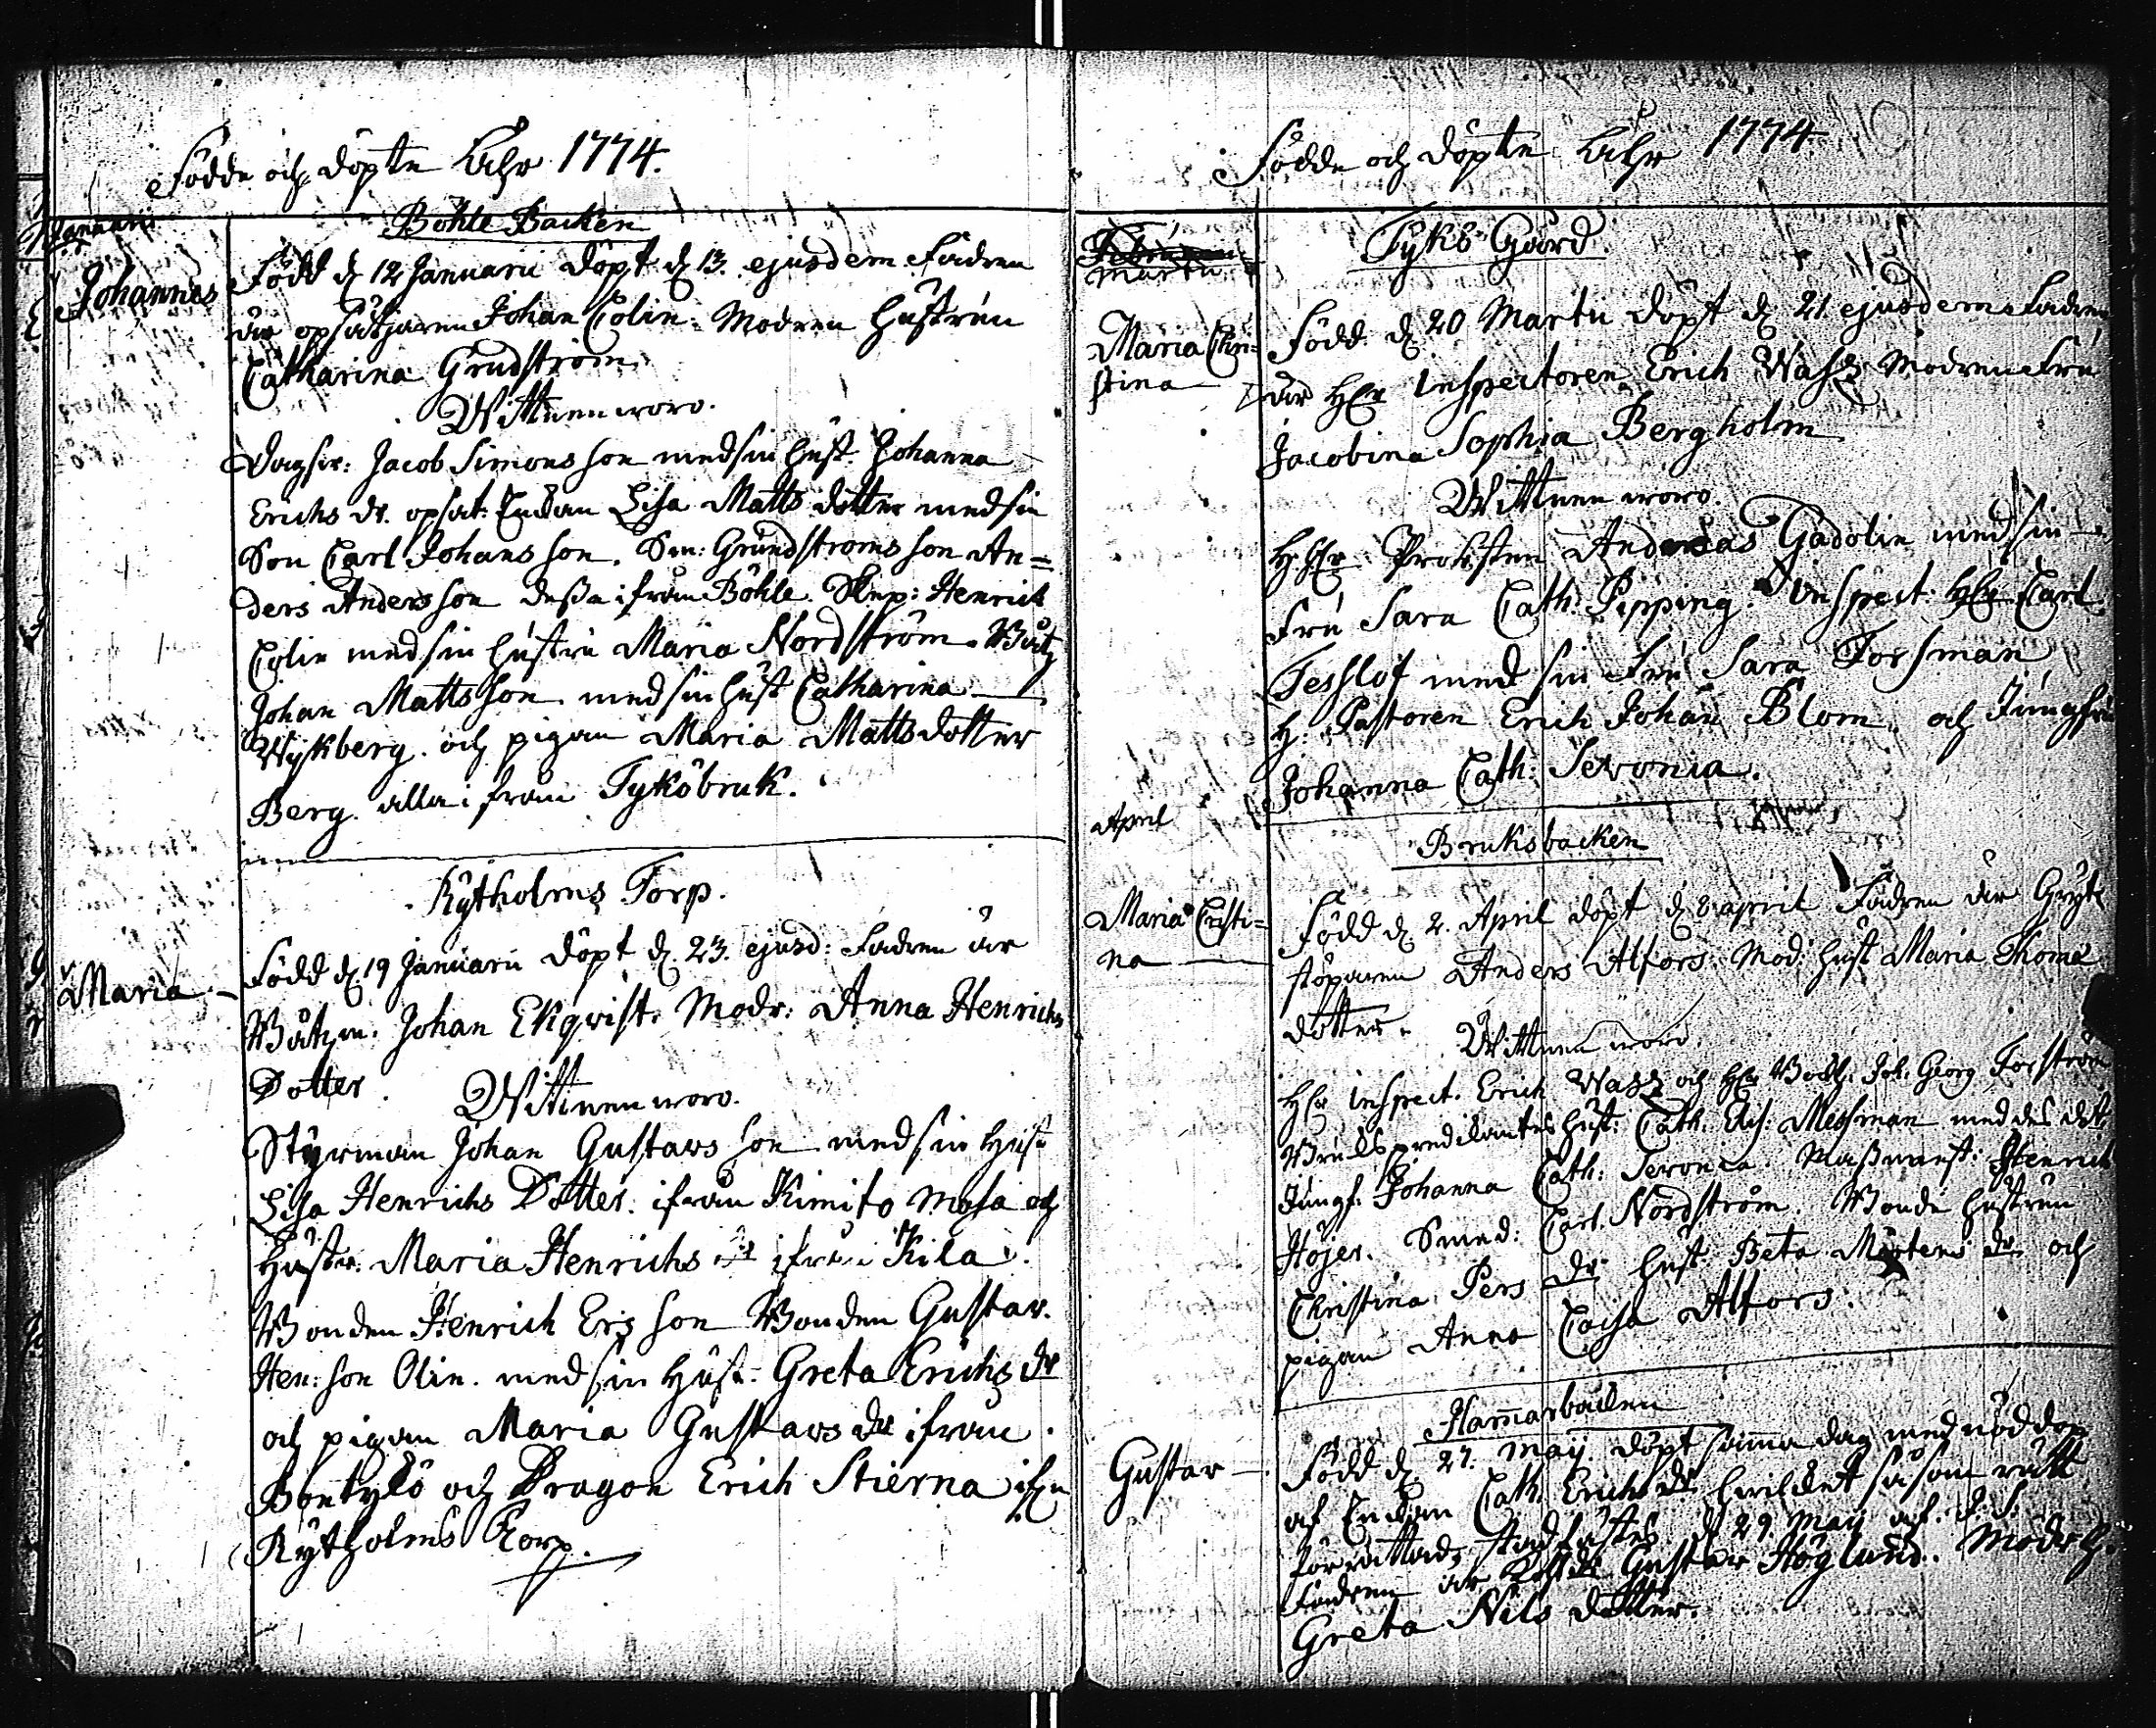 Födde och döpte Åhr 1774.
Januarii
Böhle Backen
Johannes
Född d. 12 Januarii döpt d. 13. ejusdem Fadren
är opsätjaren Johan Colin. Modren Hustrun
Catharina Grudström
Wittnen woro.
Dagkr: Jacob Simons son med sin Hust. Johanna
Erichs dr. opsät: Enkan Lisa Matts dotter med sin
Son Carl Johans son. Sm: Grundstroms son An=
ders Anders son dessa ifrån Böhle. Skep: Henrich
Colin med sin hustru Maria Nordström. Båtz
Johan Matts son med sin Hust Catharina
Wykberg. och pigan Maria Matts dotter
Berg. alla ifrån Tyköbruk.
Rytholms Torp.
Maria
Född d. 19 Januarii döpt d. 23. ejusd: Fadren är
Båtzm. Johan Ekqvist. Modr: Anna Henrichs
Dotter. Wittnen woro.
Styrman Johan Gustavs son med sin Hust
Lisa Henrichs Dotter. ifrån Kimito Masa och
Hustr: Maria Henrichs dr ifrån Kila.
Bonden Henrich Ers son Bonden Gustav.
Hen: son Olin. med sin Hust: Greta Erichs dr
och pigan Maria Gustavs dr ifrån
och Dragon Erich Stierna ifrn
Rytholms Torp.
Födde och döpte Åhr 1774
Februarii
Martii
Tykö Gård.
Maria Chri=
stina
Född d. 20 Martii döpt d. 21 ejusdem Fadren
är Hr Inspectoren Erich Wass Modren Fru
Jacobina Sophia Bergholm
Wittnen woro.
H. Hr Prosten Andreas Gadolin med sin
Fru Sara Cath: Pipping. Inspect: Hr Carl
Tesslöf med sin Fru Sara Forsman
H. Pastoren Erich Johan Blom. och Jungfru
Johanna Cath: Seronia.
April
Bruksbacken
Maria Cristi=
na
Född d. 2. April döpt d. 8 april Fadren är Gryt
stöparen Anders Alfors. Mod: Hust Maria Thomæ
dotter. Wittnen woro.
Hr Inspect. Erich Wass och Hr Bokh: Joh: Georg Forström
Brukspredikantes Hust: Cath: Mesman med des dott
Jungf. Johanna Cath: Seronia. Massmest: Henrich
Höjer. Smed: Carl. Nordström. Bonde hustrun
Christina Pers dr. Hust. Beta Mårtens dr och
pigan Anna Caisa Alfors.
Hamarbacken
Gustav
Född d. 27. May döpt samma dag med nöddop
af Enkan Cath. Erichs dr hvilket såsom rätt
förrättadt stadfästes d. 29. May af. d. s.
Fadren är Gustav Höglund. Modr H.
Greta Nils dotter.